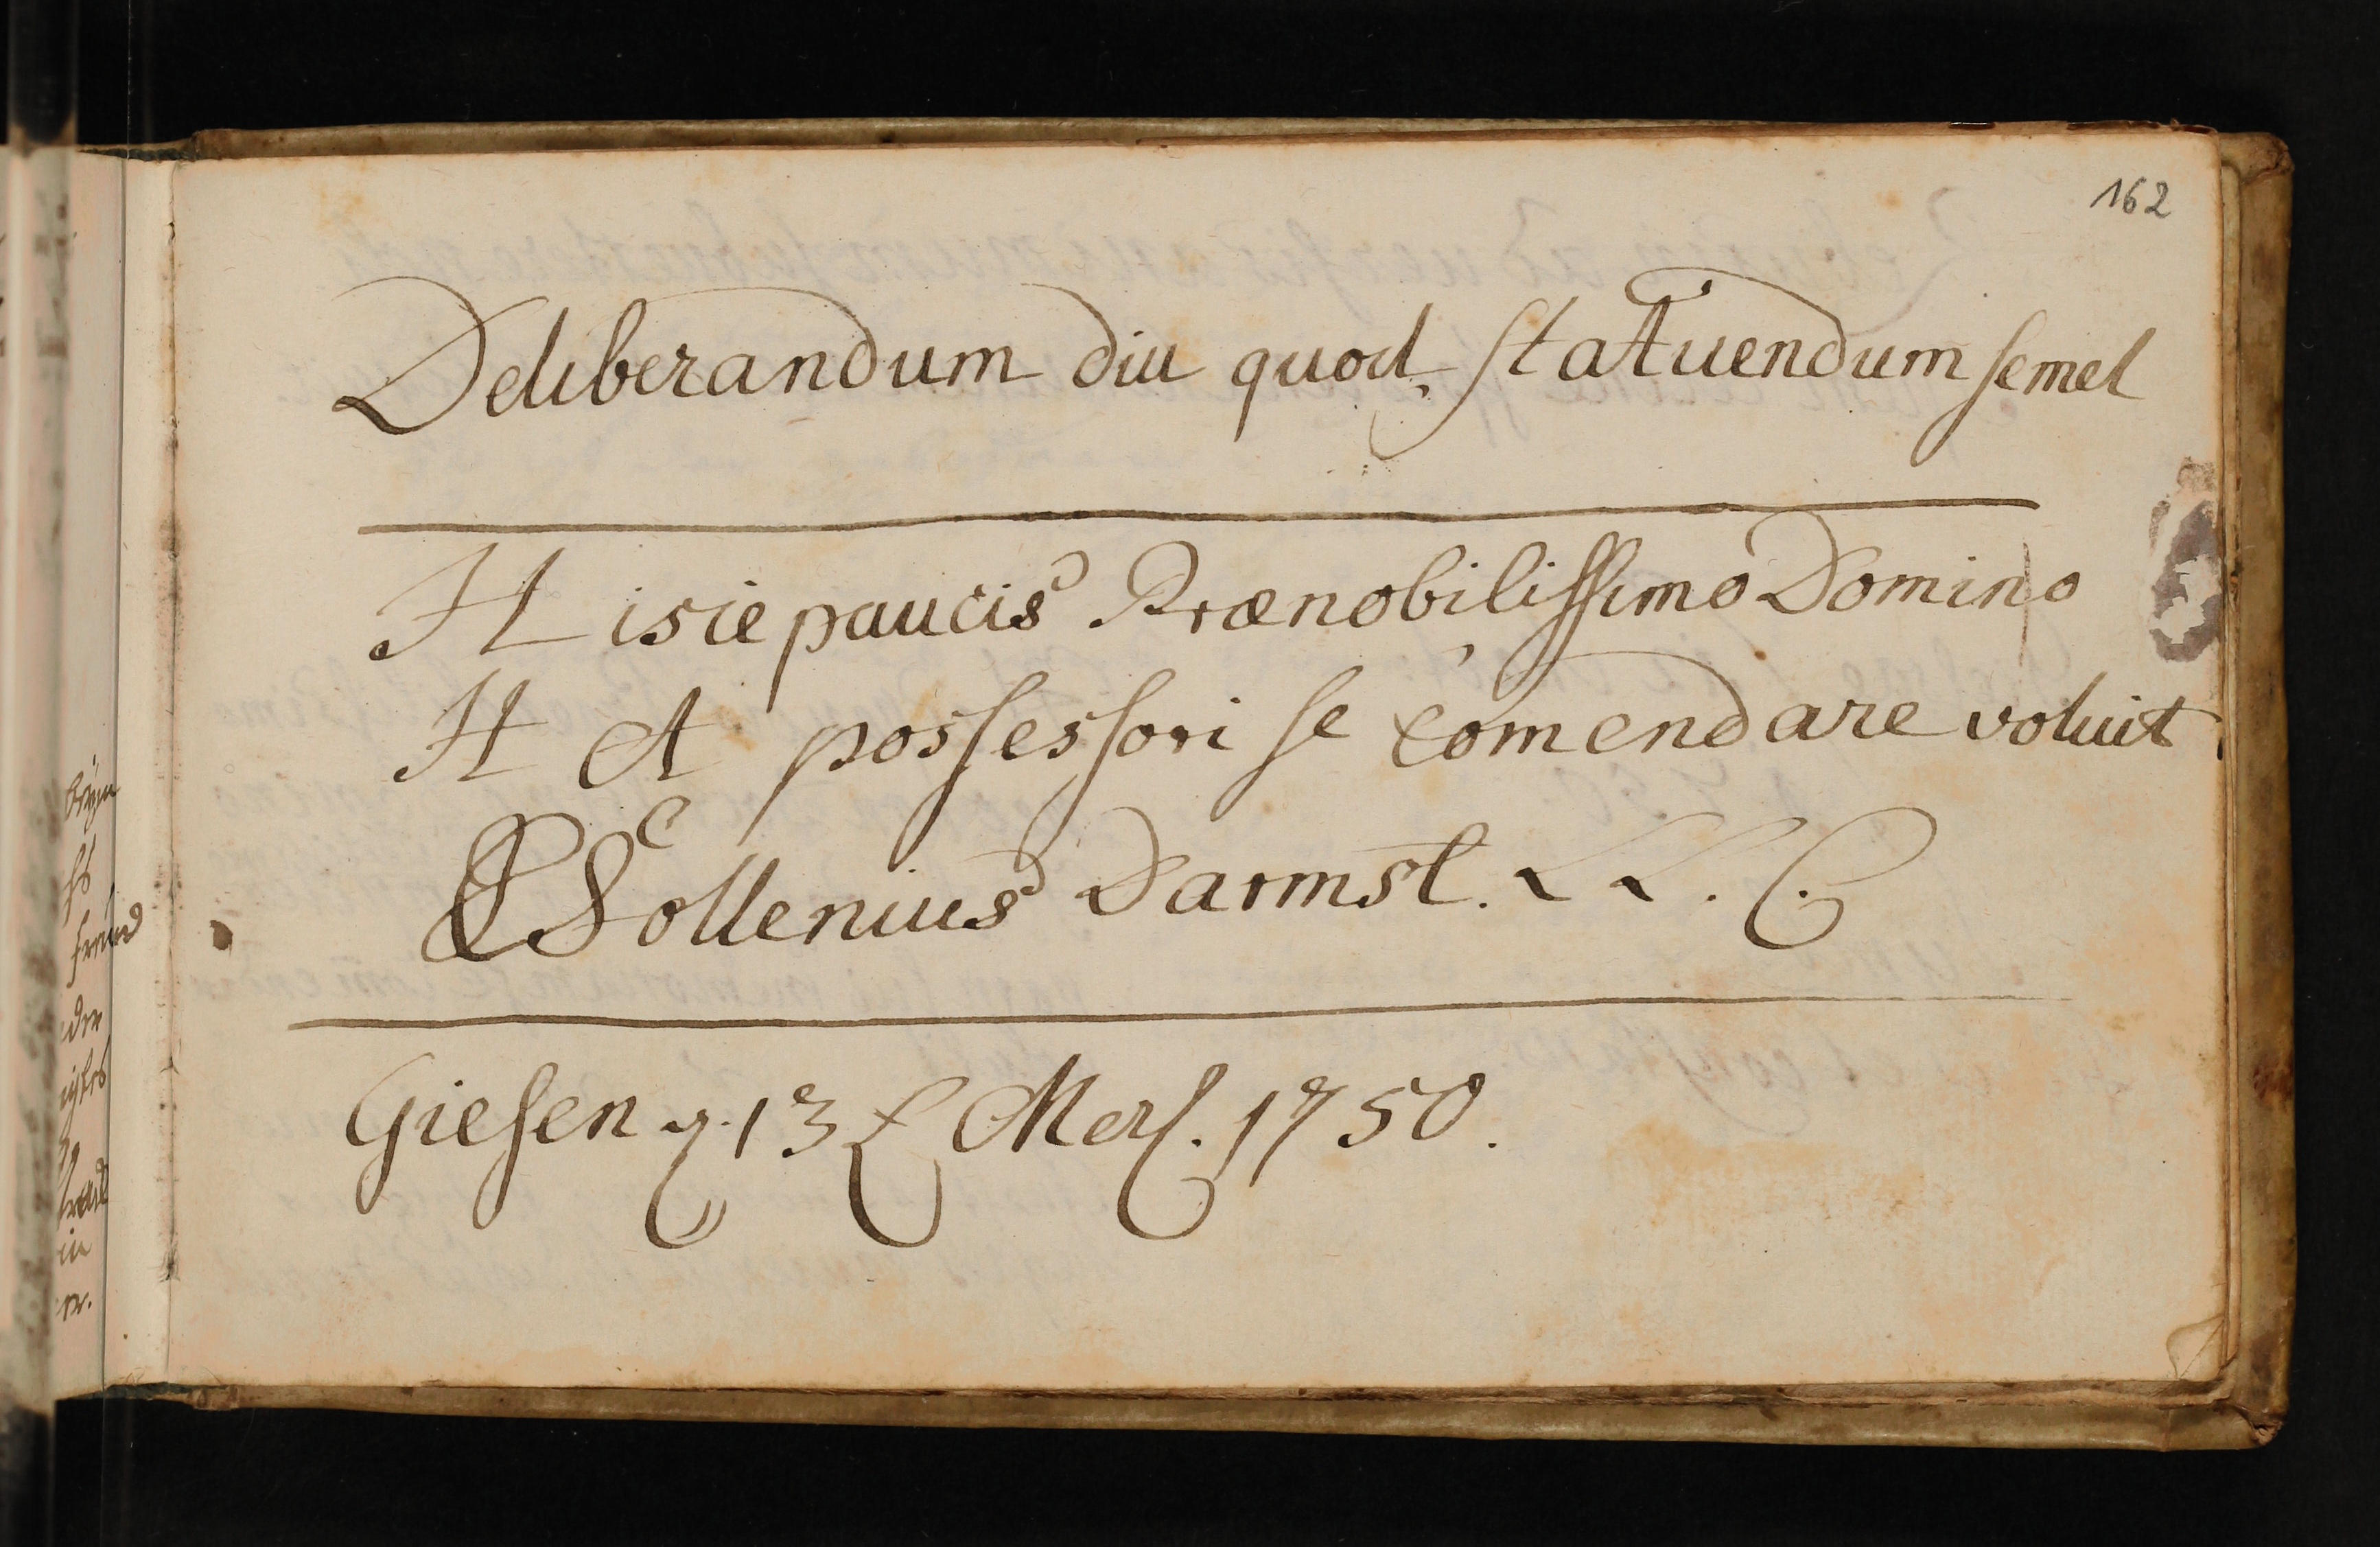 162
Deliberandum diu quod statuendum semel
Hisie paucis Prænobilissimo Domino
H A possessori se comendare voluit
Sollenius Darmst. L L. C.
Giesen 13 Mers. 1750.